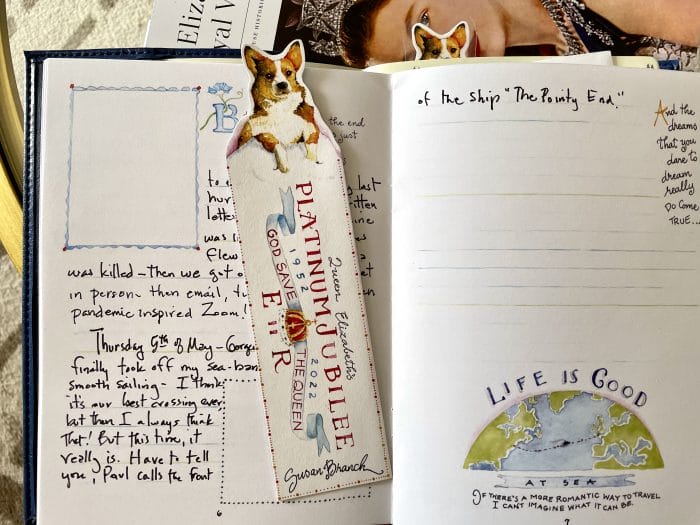 Eliz
B
the end
just
to
last
was killed – then we got
in person – then email,
pandemic inspired Zoom!
Thursday 5th of May – Gorge
finally took off my sea-ban
smooth sailing – I think
it's our best crossing ever
but then I always think
that! But this time, it
really is. Have to tell
you, Paul calls the front
6
Queen Elizabeth's
PLATINUM JUBILEE
1952 2022
GOD SAVE THE QUEEN
E II R
Susan Branch
of the ship "The Pointy End."
And the
dreams
that you
dare to
dream
really
DO COME
TRUE...
LIFE IS GOOD
AT SEA
IF THERE'S A MORE ROMANTIC WAY TO TRAVEL
I CAN'T IMAGINE WHAT IT CAN BE.
7